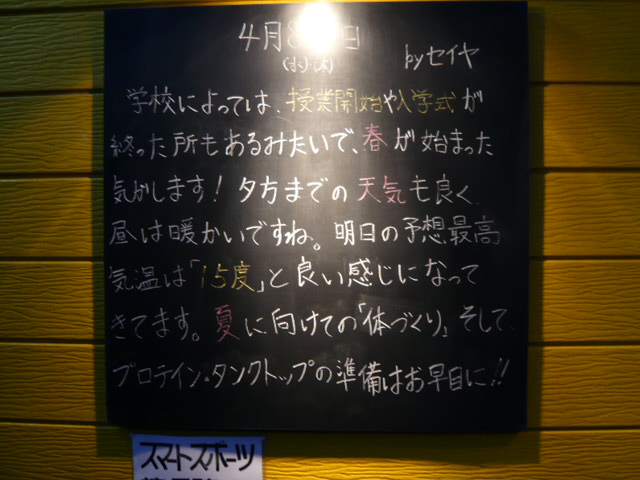 4月8日
by セイヤ
学校によっては、授業開始や入学式が
終った所もあるみたいで、春が始まった
気がします！夕方までの天気も良く、
昼は暖かいですね。明日の予想最高
気温は「15度」と良い感じになって
きてます。夏に向けての「体づくり」そして、
プロテイン・タンクトップの準備はお早目に!!
スマートスポーツ